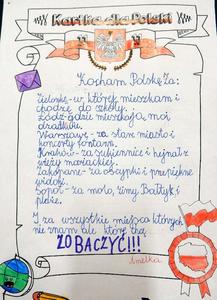 Kartka dla Polski
Kocham Polskę za:
Zielonkę - w której mieszkam i
chodzę do szkoły.
Łódź - gdzie mieszkają moi
dziadkowie.
Warszawę - za stare miasto i
koncerty fontann.
Kraków - za sukiennice i hejnał z
wieży mariackiej.
Zakopane - za oscypki i przepiękne
widoki.
Sopot - za molo, zimny Bałtyk i
plażę.
I za wszystkie miejsca których
nie znam ale które chcę
ZOBACZYĆ!!!
Amelka